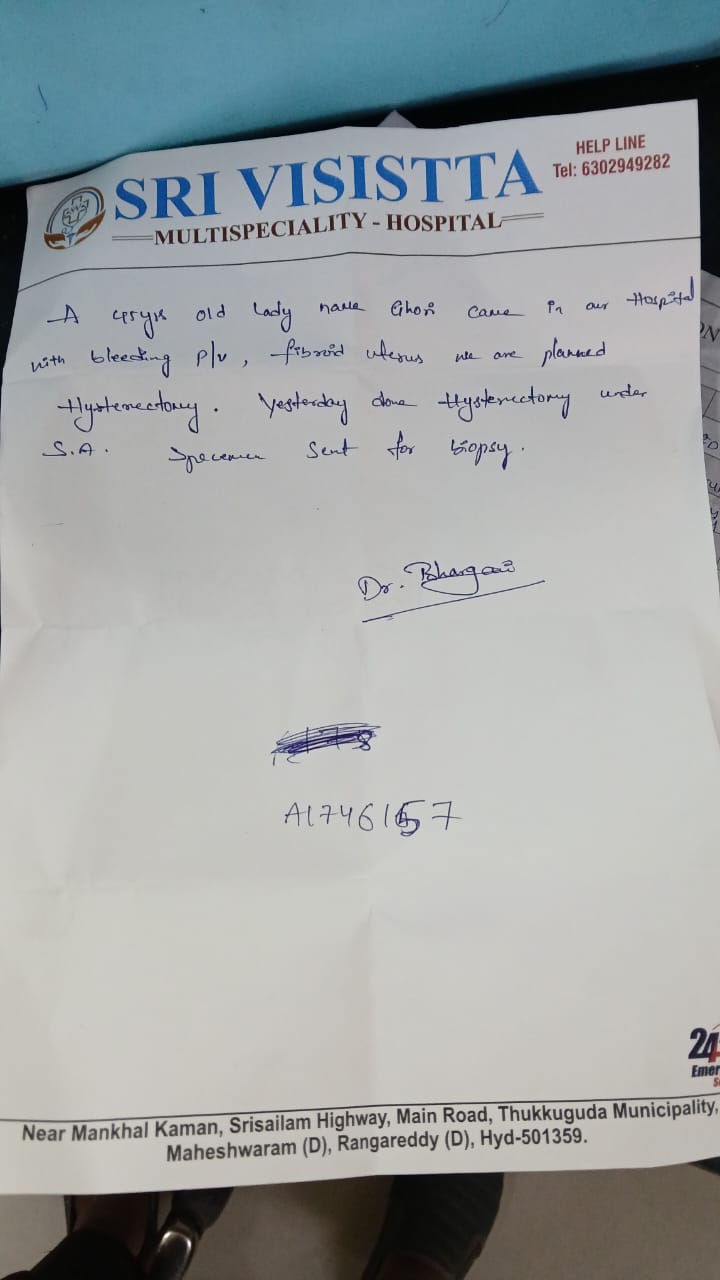 HELP LINE
Tel: 6302949282
SRI VISISTTA
MULTISPECIALITY - HOSPITAL
A 45yrs old lady name Ghori came in our Hospital
with bleeding P/v, fibroid uterus we are planned
Hysterectomy. Yesterday done Hysterectomy under
S.A. Specimen sent for biopsy.
Dr. Bhargavi
A1746157
24
Emer
Near Mankhal Kaman, Srisailam Highway, Main Road, Thukkuguda Municipality,
Maheshwaram (D), Rangareddy (D), Hyd-501359.